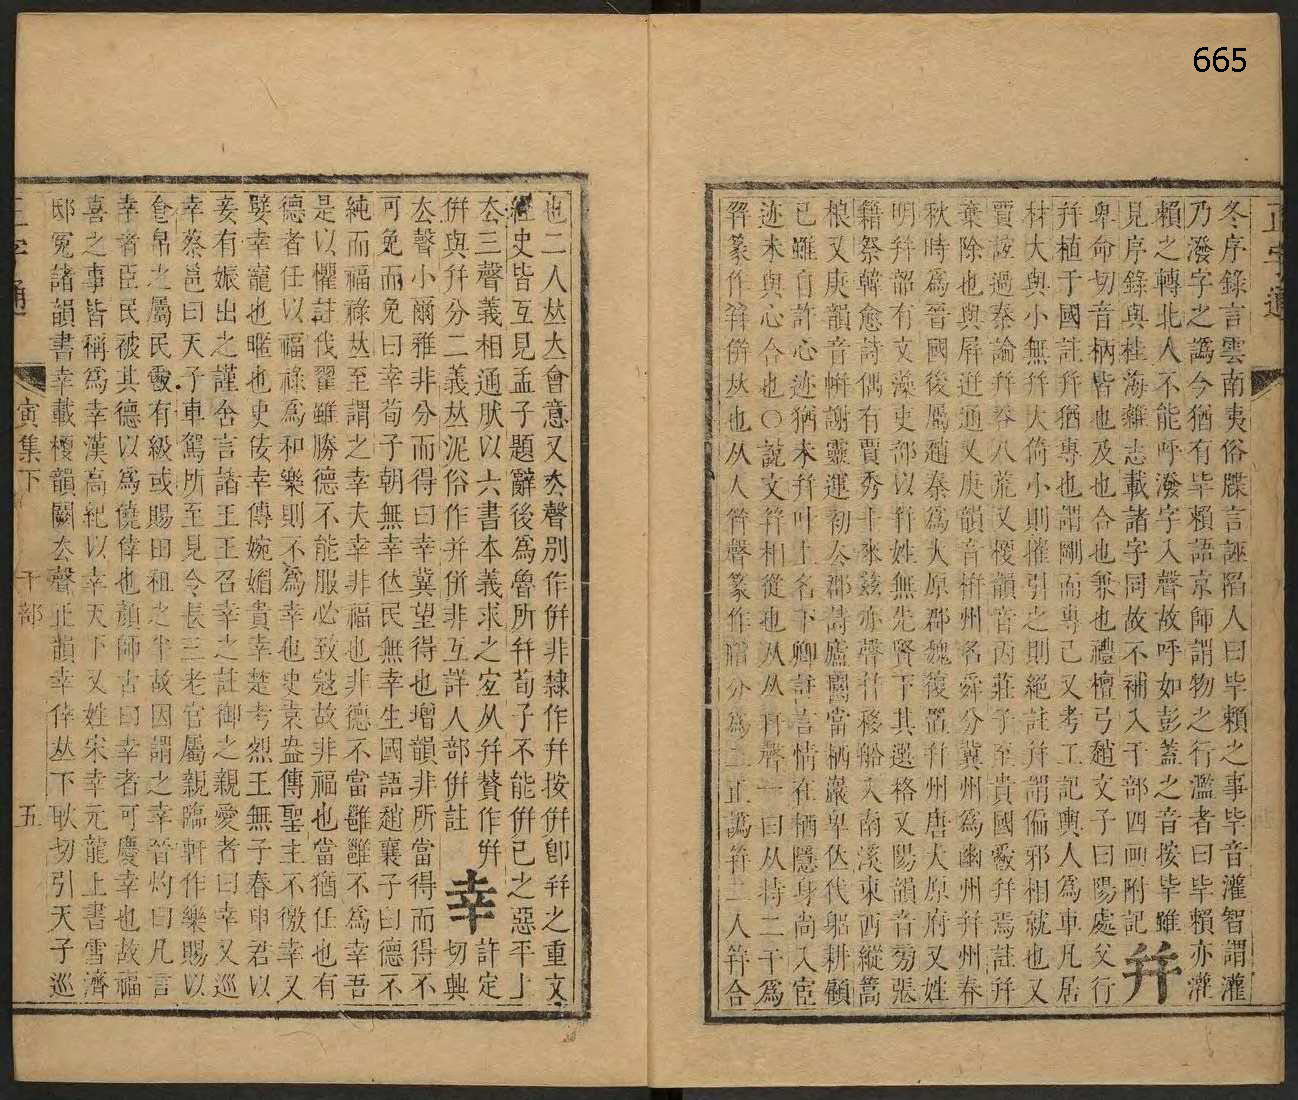 665
正字通
冬序錄言雲南夷俗牒言誣陷人曰毕賴之事毕音灌智謂灌
乃潑字之譌今猶有毕賴語京師謂物之行濫者曰毕賴亦灌
賴之轉北人不能呼潑字入聲故呼如彭蓋之音按毕雖
見序錄與桂海雜志載諸字同故不補入干部四畫附記 幷
卑命切音柄皆也及也合也兼也禮檀弓趙文子曰陽處父行
幷植于國註幷猶專也謂剛而專己又考工記輿人爲車凡居
材大與小無幷大倚小則摧引之則絕註幷謂偏邪相就也又
賈誼過秦論幷吞八荒又梗韻音丙莊子至貴國爵幷焉註幷
棄除也與屏迸通又庚韻音栟州名舜分冀州爲幽州幷州春
秋時爲晉國後屬趙秦爲大原郡魏復置幷州唐大原府又姓
明幷韶有文藻吏部以幷姓無先賢下其選格又陽韻音匇張
籍祭韓愈詩偶有賈秀才來茲亦聲幷移船入南溪東西縱篙
根又庚韻音帡謝靈運初去郡詩廬園當栖巖卑位代躬耕顧
已雖自許心迹猶未幷叶上名下卿註言情在栖隱身尚入宦
迹未與心合也〇說文幷相從也从从幵聲一曰从持二干爲
幷篆作幷倂𠀤也从人幷聲篆作 分爲二正譌幷二人幷合
也二人𠀤大會意又去聲別作倂非隸作幷按倂卽幷之重文
經史皆互見孟子題辭後爲魯所幷荀子不能倂己之惡平上
去三聲義相通肰以六書本義求之宜从幷贅作倂
倂與幷分二義𠀤泥俗作并併非互詳人部倂註 幸 許定切興
去聲小爾雅非分而得曰幸冀望得也增韻非所當得而得不
可免而免曰幸荀子朝無幸位民無幸生國語趙襄子曰德不
純而福祿𠀤至謂之幸夫幸非福也非德不當雝雝不爲幸吾
是以懼註伐翟雖勝德不能服必致寇故非福也當猶任也有
德者任以福祿爲和樂則不爲幸也史袁盎傳聖主不徼幸又
嬖幸寵也暱也史佞幸傳婉媚貴幸楚考烈王無子春申君以
妾有娠出之謹舍言諸王王召幸之註御之親愛者曰幸又巡
幸蔡邕曰天子車駕所至見令長三老官屬親臨軒作樂賜以
食帛之屬民爵有級或賜田租之半故因謂之幸晉灼曰凡言
幸者臣民被其德以爲僥倖也顏師古曰幸者可慶幸也故福
喜之事皆稱爲幸漢高紀以幸天下又姓宋幸元龍上書雪濟
邸冤諸韻書幸載梗韻闕去聲正韻幸倖𠀤下耿切引天子巡
正字通 寅集下 干部 五